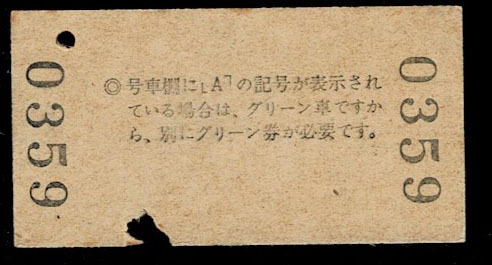 ◎号車欄に「A」の記号が表示され
ている場合は、グリーン車ですか
ら、別にグリーン券が必要です。
0359
0359